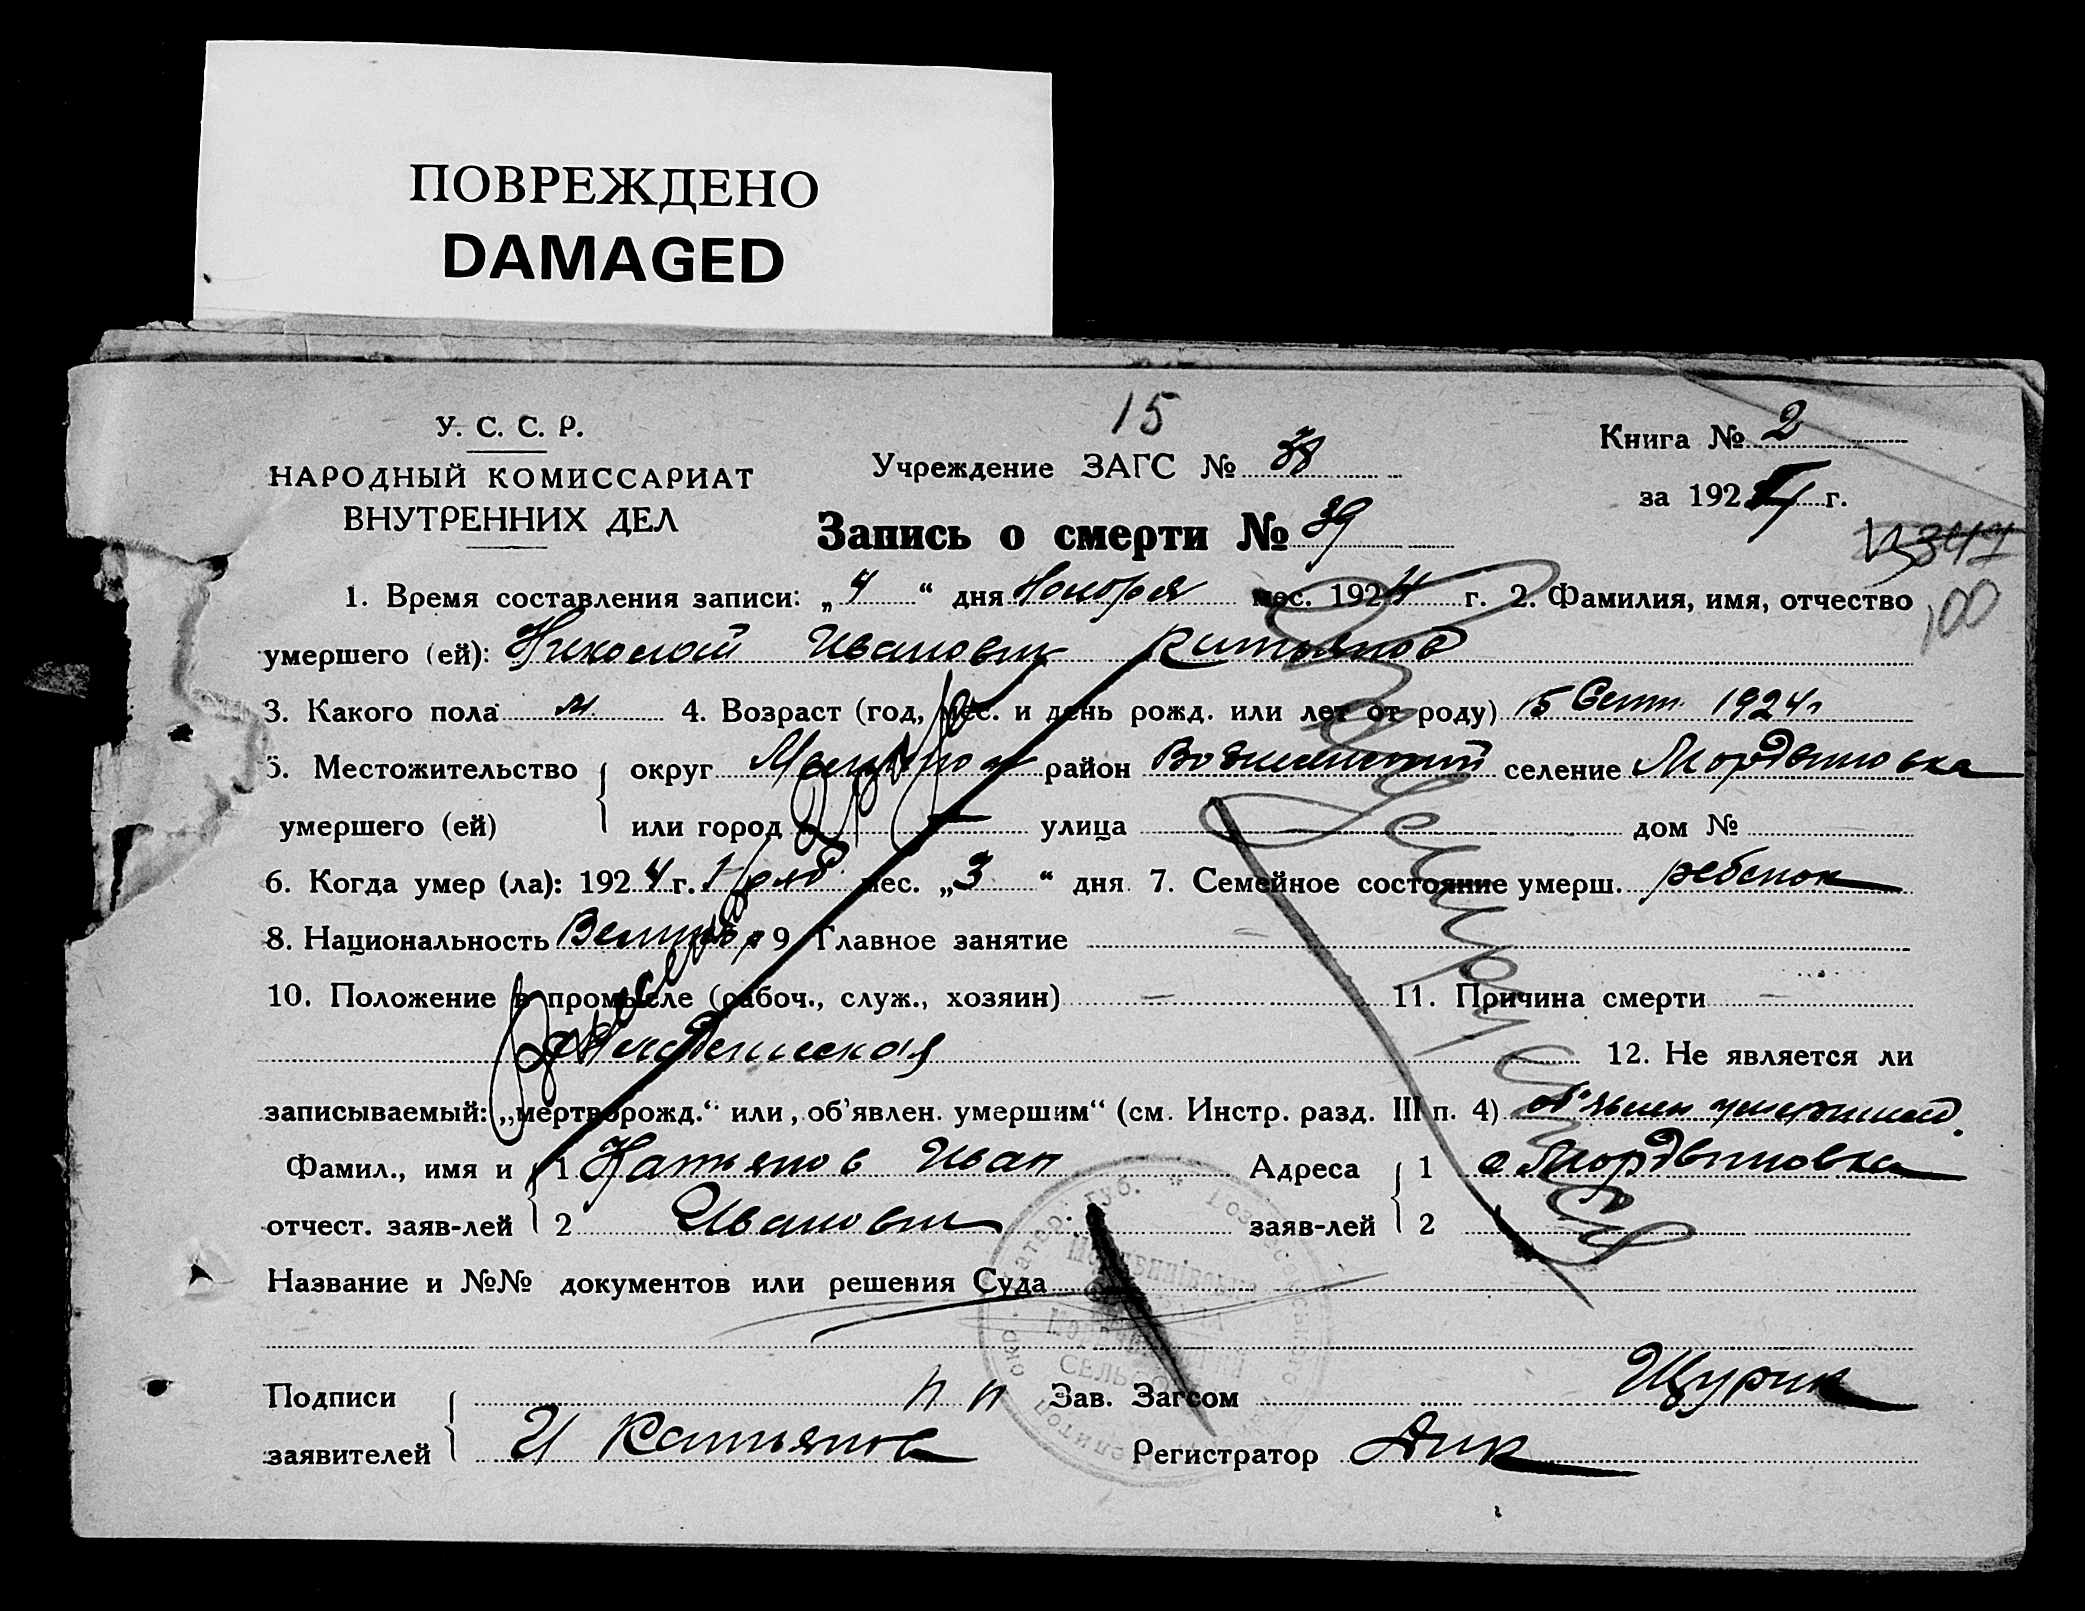 ПОВРЕЖДЕНО
DAMAGED
15
У. С. С. Р.
НАРОДНЫЙ КОМИССАРИАТ
ВНУТРЕННИХ ДЕЛ
Учреждение ЗАГС № 38
Книга № 2
за 1924 г.
Запись о смерти № 39
100
1. Время составления записи: „4“ дня Ноября мес. 1924 г. 2. Фамилия, имя, отчество
умершего (ей): Николай Иванович
3. Какого пола м. 4. Возраст (год, мес. и день рожд. или лет от роду) 15 Сент. 1924 г
5. Местожительство округ район селение Мордвиновка
умершего (ей) или город улица дом №
6. Когда умер (ла): 1924 г. Нояб мес. „3“ дня 7. Семейное состояние умерш. ребенок
8. Национальность 9. Главное занятие
10. Положение в промысле (рабоч., служ., хозяин) — 11. Причина смерти —
12. Не является ли
записываемый: „мертворожд.“ или „об'явлен. умершим“ (см. Инстр. разд. III п. 4) об'явлен умершим.
Фамил., имя и 1 Катьянов Иван Адреса 1 с Мордвиновка
отчест. заяв-лей 2 Иванович заяв-лей 2
Название и №№ документов или решения Суда
Подписи п п Зав. Загсом Щурик
заявителей И Катьянов Регистратор